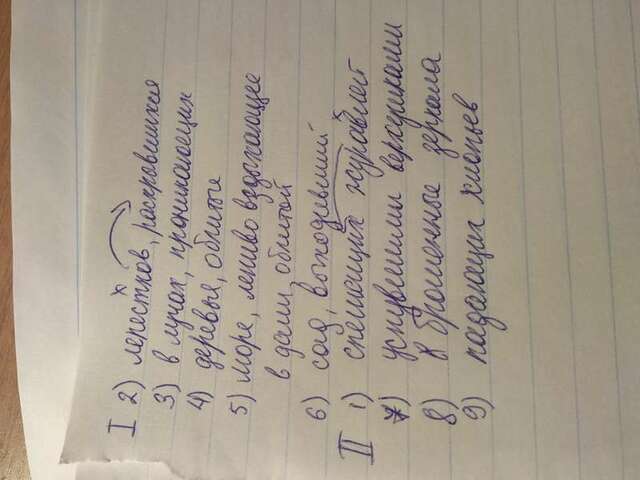 I 2) лепестков, раскрывшихся
3) в лучах, проникающих
4) деревья, облитые
5) море, лениво вздыхающее
в дали облитой
6) сад, выходивший
II 1) спешащих журавлей
7) уснувшими верхушками
8) к брошенные зеркала
9) падающих хлопьев